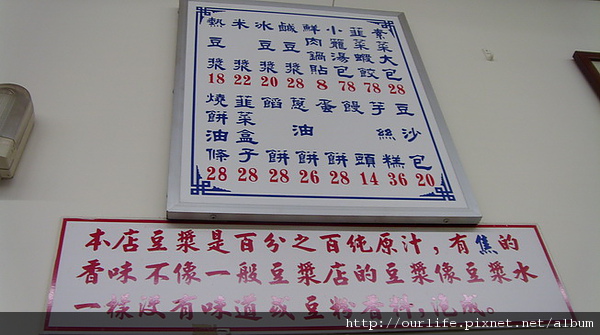 熱豆漿 18
米漿 22
冰豆漿 20
鹹豆漿 28
鮮肉鍋貼 8
小籠湯包 78
韭菜蝦餃 78
素菜大包 28
燒餅油條 28
韭菜盒子 28
餡餅 28
蔥油餅 26
蛋餅 28
饅頭 14
芋絲糕 36
豆沙包 20
本店豆漿是百分之百純原汁，有焦的
香味不像一般豆漿店的豆漿像豆漿水
一樣沒有味道或豆粉香料，成。
http://ourlife.pixnet.net/album